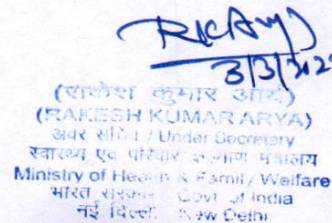 3/3/202
(राकेश कुमार आर्य)
(RAKESH KUMAR ARYA)
अवर सचिव / Under Secretary
स्वास्थ्य एवं परिवार कल्याण मंत्रालय
Ministry of Health & Family Welfare
भारत सरकार Govt of India
नई दिल्ली New Delhi